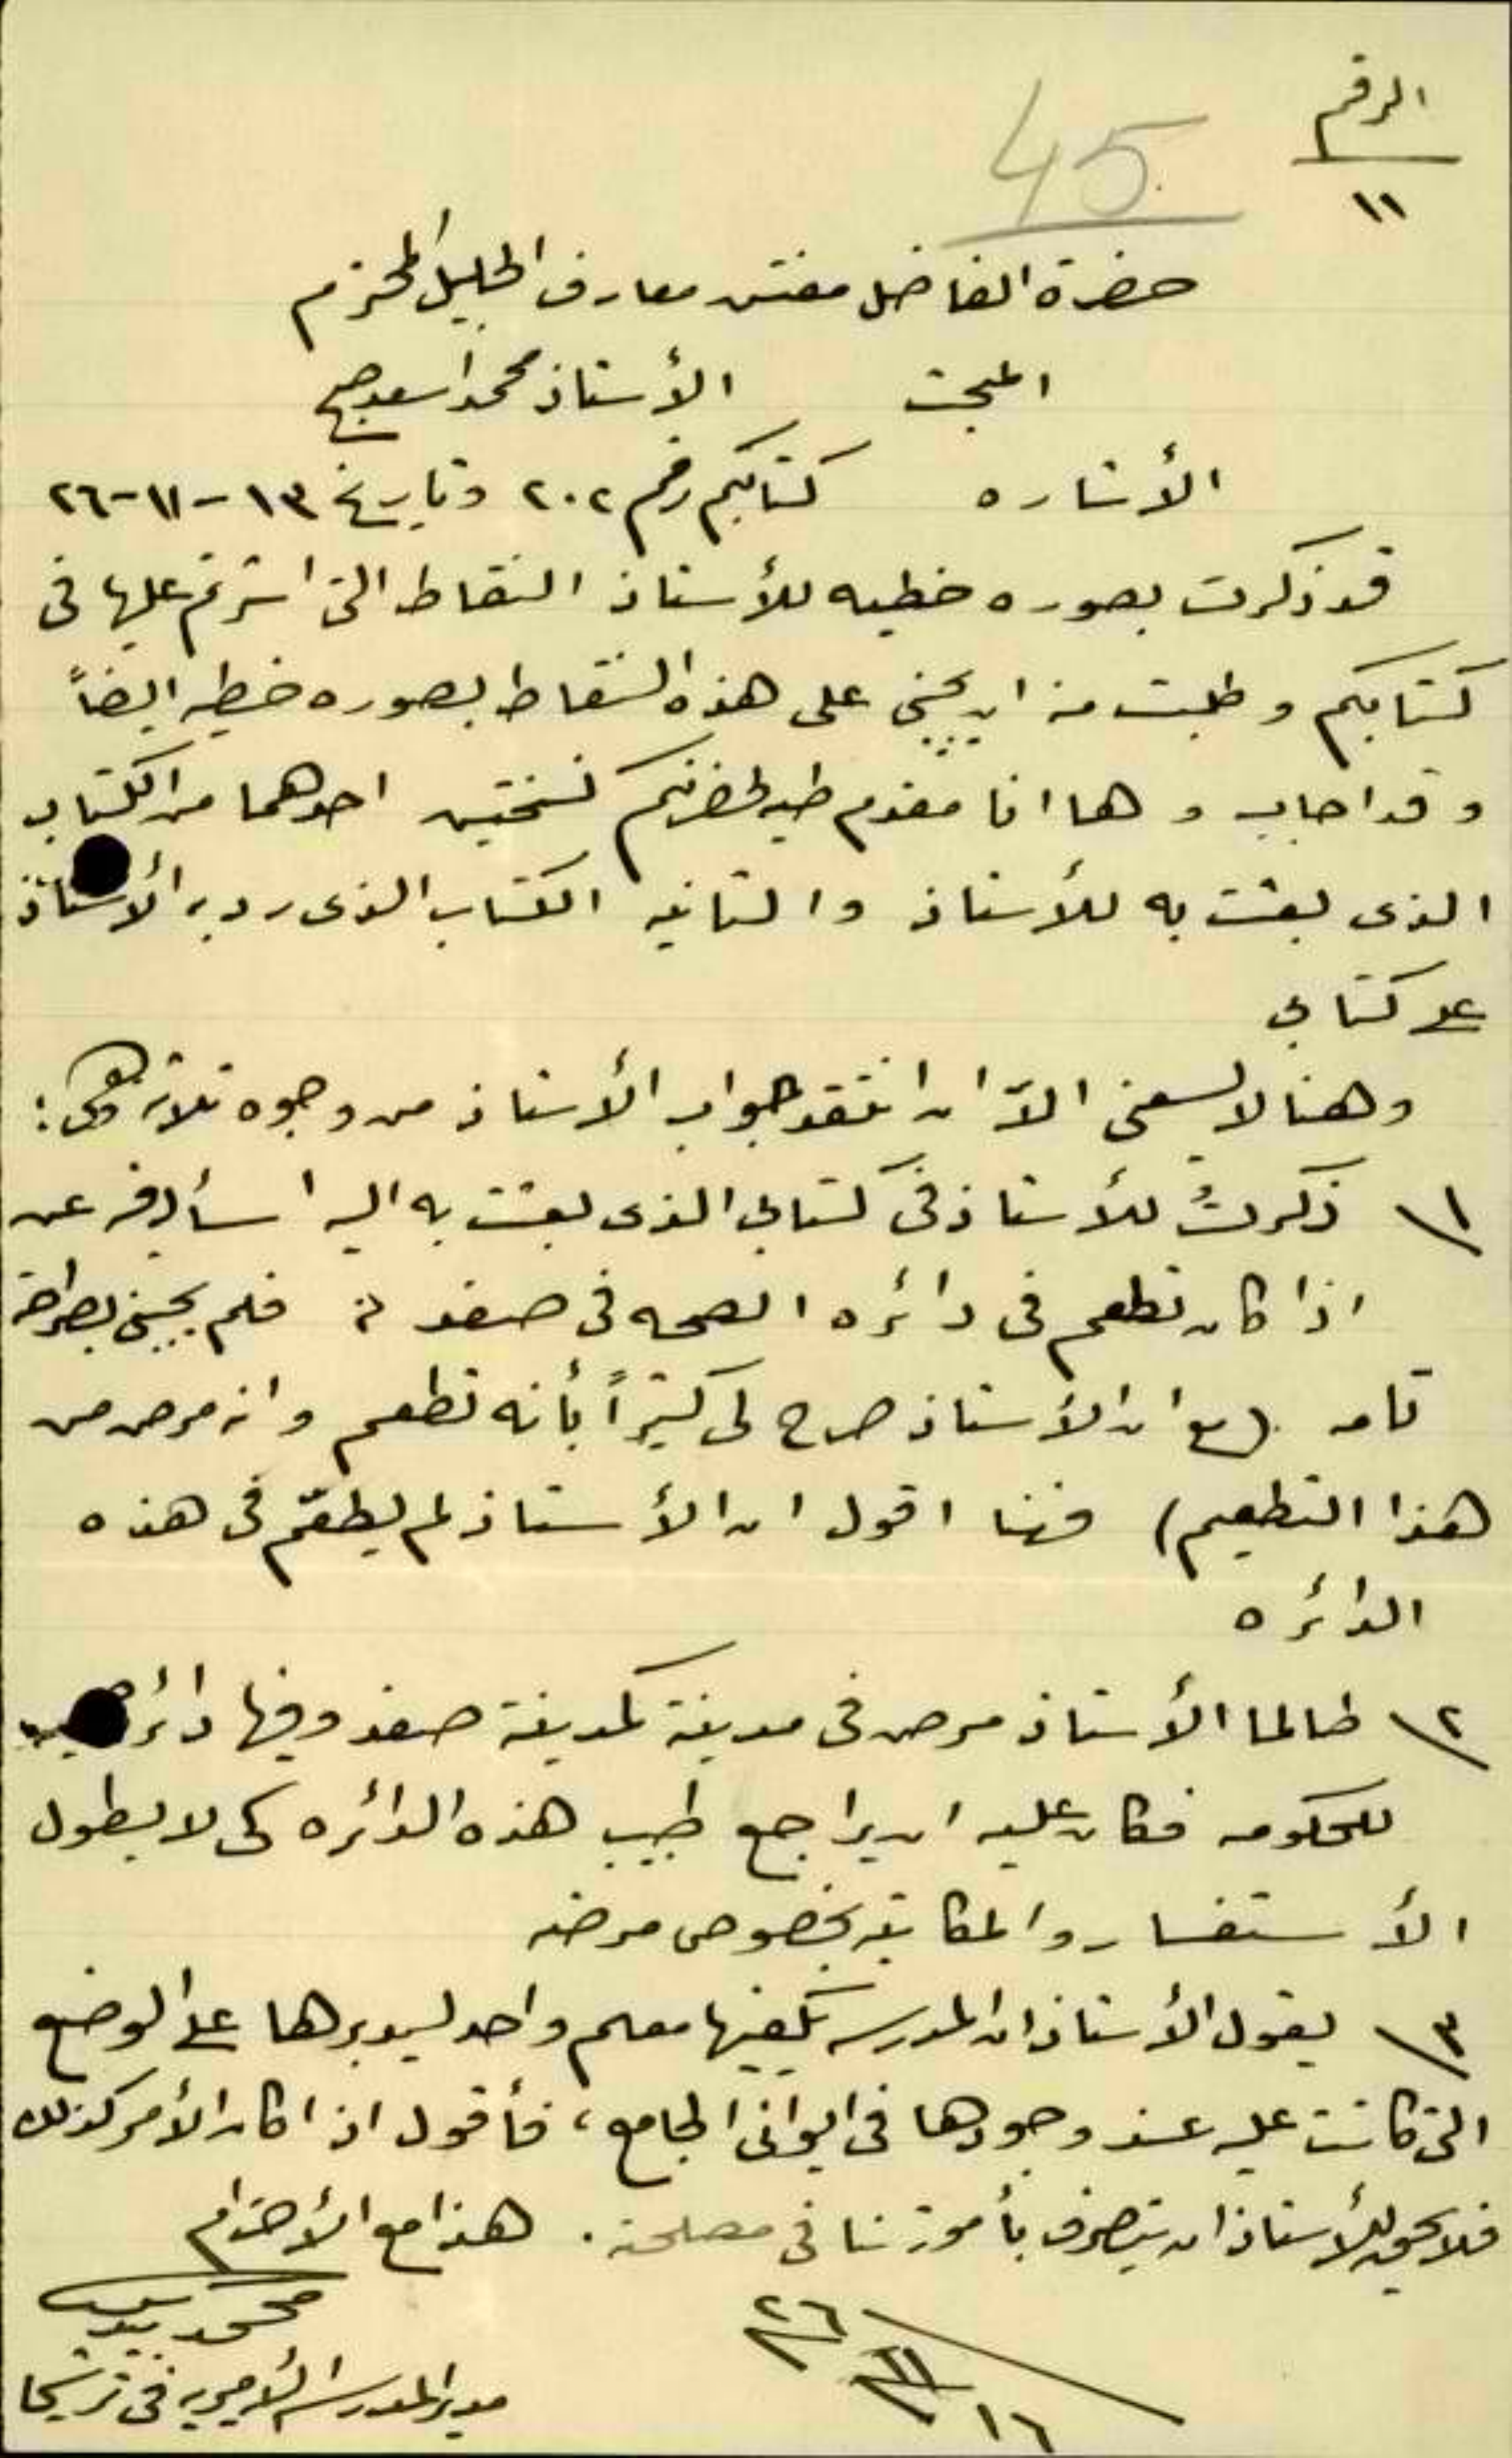 الرقم
١١
45
حضرة الفاضل مفتش معارف الجليل المحترم
المبحث الأستاذ محمد اسعد
الأشاره كتابكم رقم ٢٠٢ وتاريخ ١٣-١١-٢٦
قد ذكرت بصوره خطيه للأستاذ النقاط التي اشرتم عليها في
كتابكم وطلبت منه ان يجيبني على هذه النقاط بصوره خطيه ايضاً
وقد اجاب وها انا مقدم طيه لحضرتكم نسختين احدهما من الكتاب
الذي بعثت به للأستاذ والثانيه الكتاب الذي رد به الأستاذ
على كتابي
وهنا لا يسعني الاّ ان انتقد جواب الأستاذ من وجوه ثلاثه وهي:
١\ ذكرتُ للأستاذ في كتابي الذي بعثت به اليه اسأله فيه عن
اذا كان تطعم في دائره الصحه في صفد فلم يجبني بصراحة
تامه (مع ان الأستاذ صرح لي كثيراً بأنه تطعم وانه مرض من
هذا التطعيم) فهنا اقول ان الأستاذ لم يطعّم في هذه
الدائره
٢\ طالما الأستاذ مرض في مدينة كمدينة صفد وفيها دائرة
للحكومه فكان عليه ان يراجع طبيب هذه الدائره كي لا يطول
الأستفسار والمكاتبه بخصوص مرضه
٣\ يقول الأستاذ ان المدرسه يكفيها معلم واحد ليديرها على الوضع
التي كانت عليه عند وجودها في ايواني الجامع، فأقول اذا كان الأمر كذلك
فلا يحق للأستاذ ان يتصرف بأمورنا في مصلحة. هذا مع الأحترام
محمد
مدير المدرسه الأميريه في ترشيحا
١٦/١١/٢٦